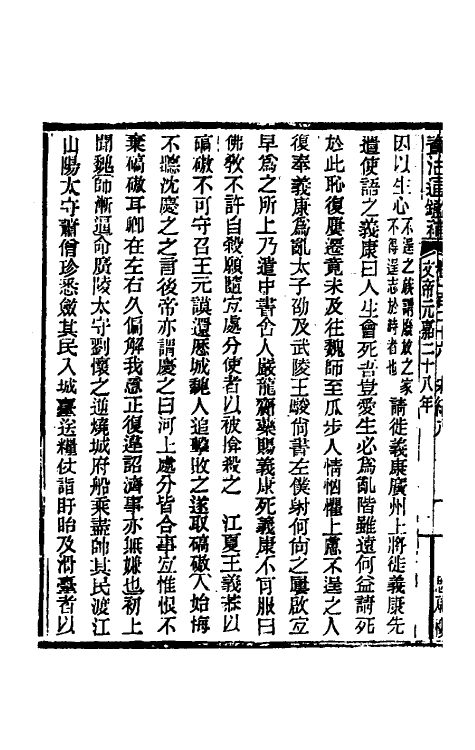 資治通鑑補
卷一百二十六 宋紀八
文帝元嘉二十八年
因以生心不逞之族謂廢放之家不得逞志於時者也請徙義康廣州上將徙義康先
遣使語之義康曰人生會死吾豈愛生必爲亂階雖遠何益請死
於此恥復屢遷竟未及往魏師至瓜步人情恟懼上慮不逞之人
復奉義康爲亂太子劭及武陵王駿尚書左僕射何尚之屢啟宜
早爲之所上乃遣中書舍人嚴龍齎藥賜義康死義康不肯服曰
佛教不許自殺願隨宜處分使者以被揜殺之 江夏王義恭以
碻磝不可守召王元謨還歷城魏人追擊敗之遂取碻磝入始悔
不聽沈慶之之言後帝亦謂慶之曰河上處分皆合事宜惟恨不
棄碻磝耳卿在左右久偏解我意正復違詔濟事亦無嫌也初上
聞魏師漸逼命廣陵太守劉懷之逆燒城府船乘盡帥其民渡江
山陽太守蕭僧珍悉斂其民入城臺送糧仗詣盱眙及滑臺者以